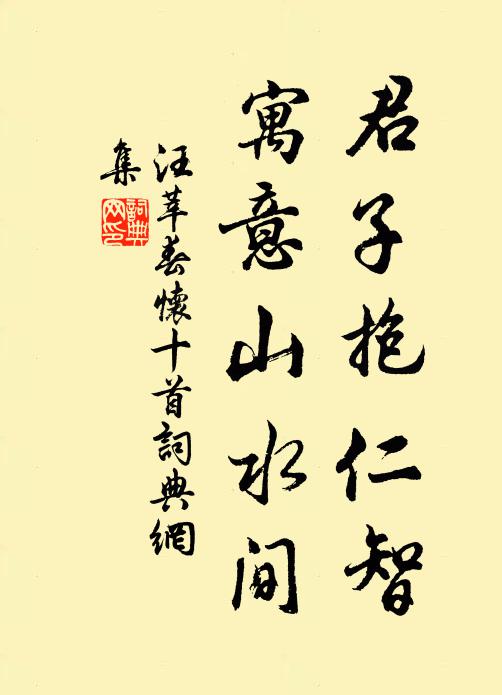 君子抱仁智
寓意山水间
汪莘春懷十首詞典網
集
詞典
网印